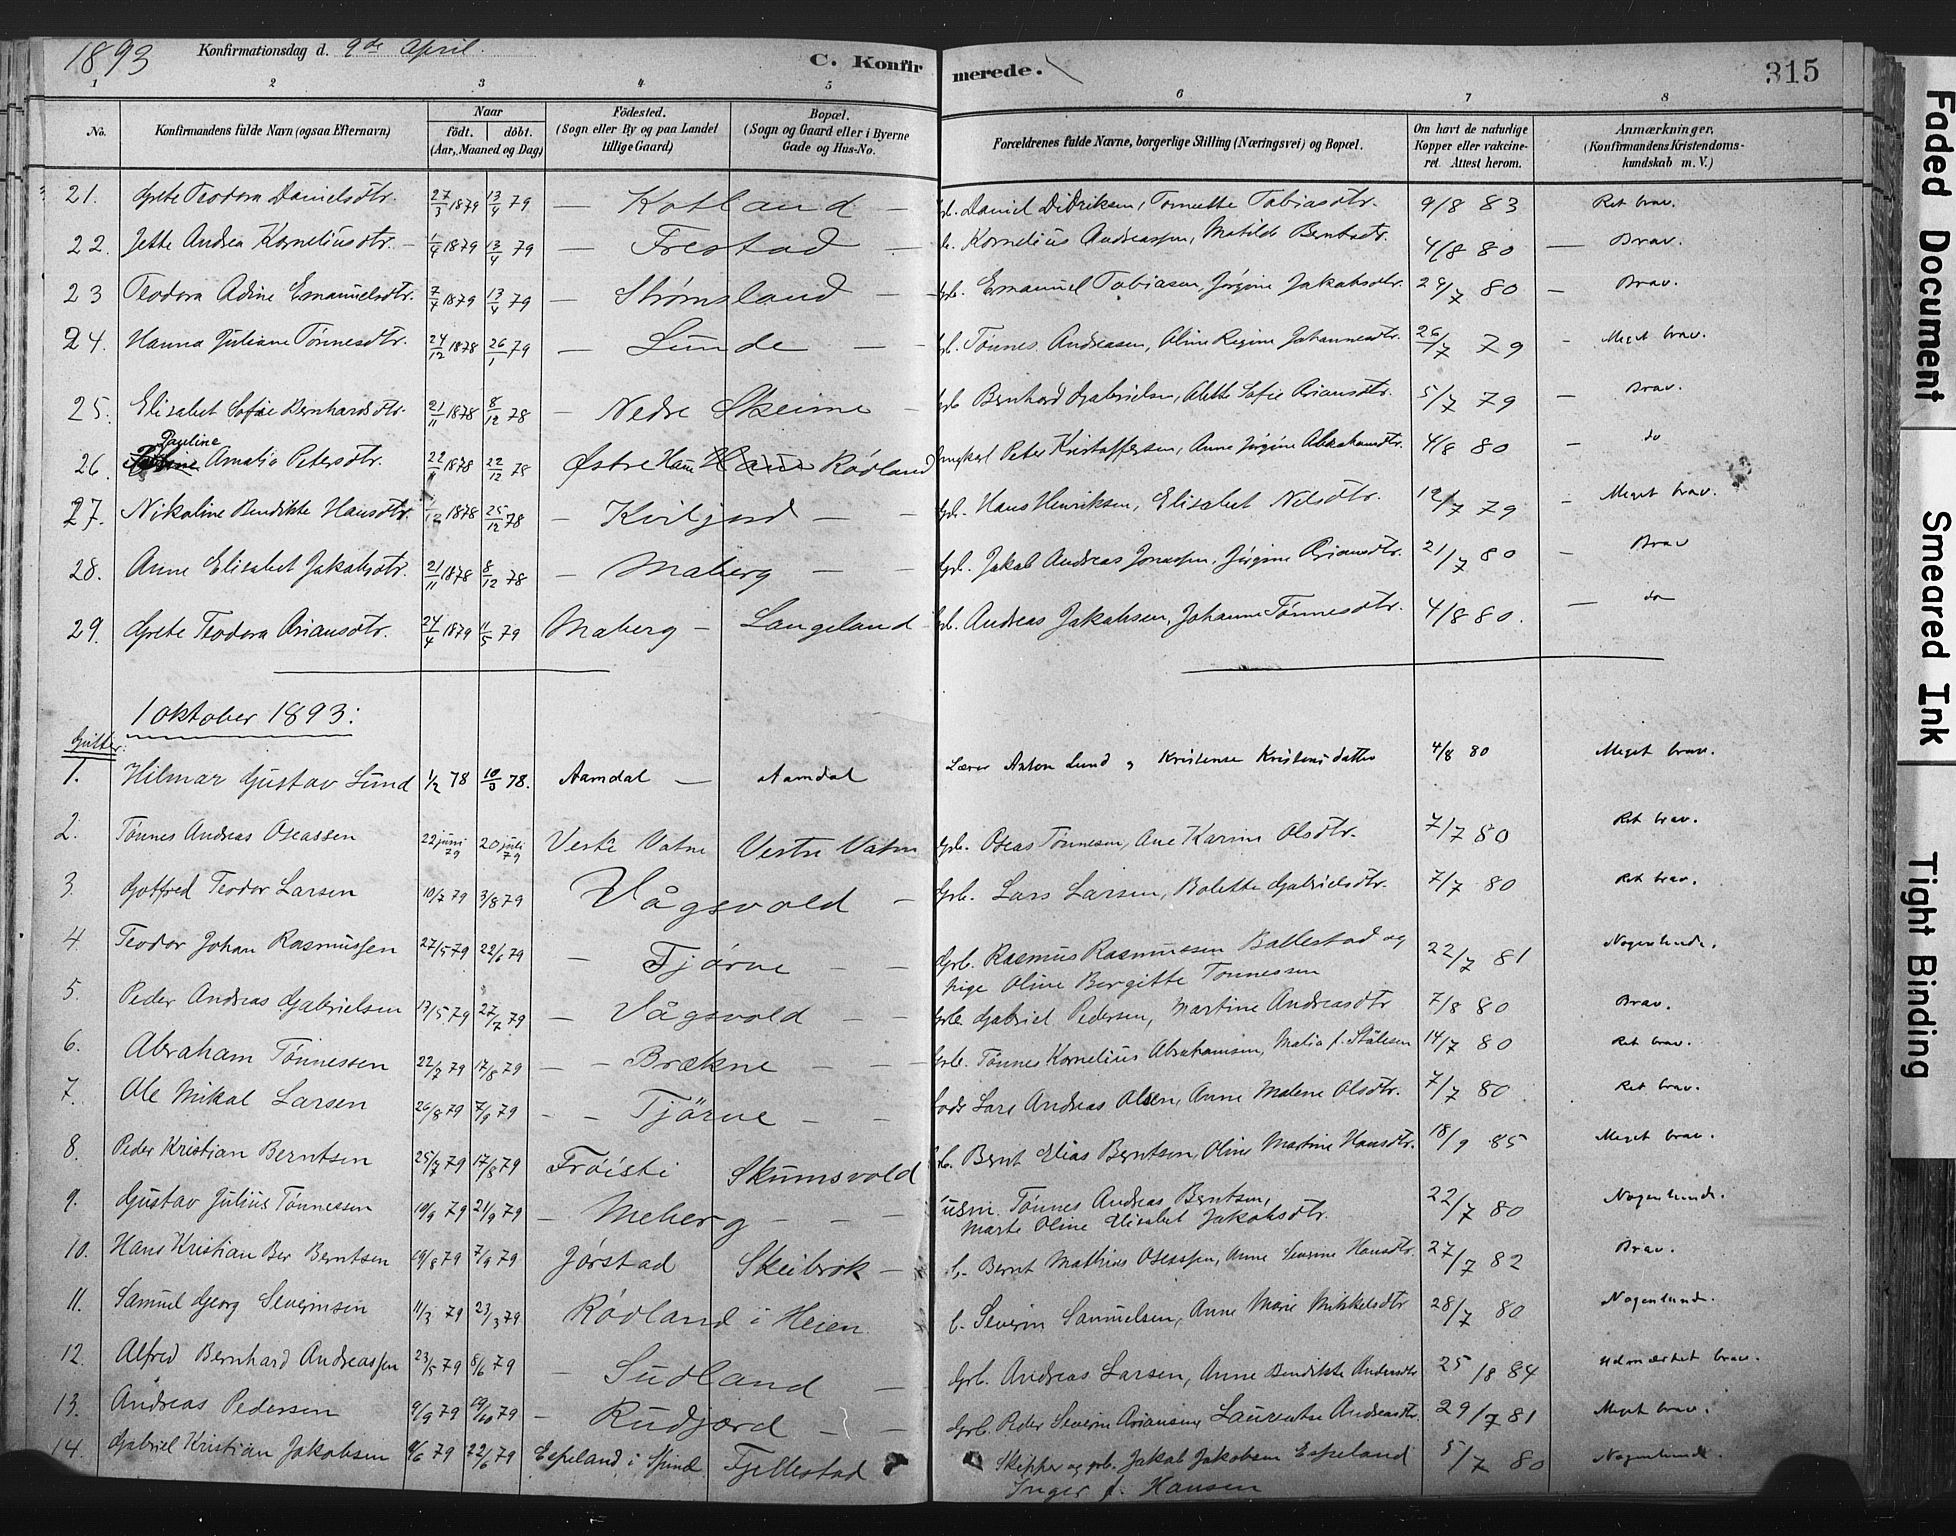 1893 Konfirmationsdag d. 9de April. C. Konfirmerede. 315
1 2 3 4 5 6 7 8
No. Konfirmandens fulde Navn (ogsaa Efternavn) Naar födt. döbt. (Aar, Maaned og Dag) Födested. (Sogn eller By og paa Landet tillige Gaard) Bopæl. (Sogn og Gaard eller i Byerne Gade og Hus-No. Forældrenes fulde Navne, borgerlige Stilling (Næringsvei) og Bopæl. Om havt de naturlige Kopper eller vakcineret. Attest herom. Anmærkninger, (Konfirmandens Kristendomskundskab m. V.)
21. Grete Teodora Danielsdtr. 27/3 1879 13/4 79 — Kotland — Gb. Daniel Didriksen, Tomette Tobiasdtr. 9/8 83 Ret brav.
22. Jette Andrea Korneliusdtr. — 1/4 1879 13/4 79 — Frestad — Kornelius Andreassen, Matilde Berntsdtr. 4/8 80 — Brav.
23 Teodora Adine Emanuelsdtr. 7/4 1879 13/4 79 — Strømsland — Grb. Emanuel Tobiasen, Jørgine Jakobsdtr. 29/7 80 — Brav.
24. Hanna Juliane Tønnesdtr. 24/12 1878 26/1 79 — Lunde — Tønnes Andreasen, Oline Regine Johannesdtr. 26/7 79 - Meget brav.
25. Elisabet Sofie Bernhardsdtr. 21/11 1878 8/12 78 — Nedre Skeime — Grb Bernhard Gabrielsen, Alette Sofie Ariansdtr. 5/7 79 — Brav.
26. Pauline Amalia Petersdtr. 22/12 78 Østre Hau Rödland Peter Kristoffersen, Anne Jörgine Abrahamsdtr. 4/8 80 — do
27. Nikoline Bendikte Hansdtr. 1878 25/12 78 — Kviljord — Grb. Hans Henriksen, Elisabet Nilsdtr. 12/7 79 — Meget brav.
28. Anne Elisabet Jakobsdtr. 21/11 1878 8/12 78 — Maberg — Grb. Jakob Andreas Jonassen, Jörgine Ariansdtr. 21/7 80 — Brav
29. Grete Teodora Ariansdtr. 24/4 1879 11/5 79 Maberg — Langeland Grb. Andreas Jakobsen, Johanne Tønnesdtr. 4/8 80. — do
1 oktober 1893:
Gutter:
1. Hilmar Gustav Lund 1/2 78 10/3 78. Aamdal — Aamdal Lærer Anton Lund og Kristense Kristensdatter 4/8 80 Meget brav.
2. Tönnes Andreas Oseassen 22 juni 79 20 juli 79 Vestre Vatne Vestre Vatne Grb. Oseas Tönnesen, Ane Karine Olsdtr. 7/7 80 Ret brav.
3. Gotfred Teodor Larsen 10/7 79 3/8 79 Vågsvold — Grb. Lars Larsen, Bolette Gabrielsdtr. 7/7 80 Ret brav.
4. Teodor Johan Rasmussen 27/5 79 22/6 79 — Tjörve — — Grb. Rasmus Rasmussen Ballestad og
pige Oline Bergitte Tönnessen 22/7 81 Nogenlunde.
5. Peder Andreas Gabrielsen 17/5 79 27/7 79 — Vågsvold — — Grb. Gabriel Pedersen, Martine Andreasdtr 7/8 80 Brav.
6. Abraham Tönnessen 22/7 79 17/8 79 — — Brækne — — Grb. Tönnes Kornelius Abrahamsen, Malia f. Stålesen 14/7 80 Ret brav.
7. Ole Mikal Larsen 26/8 79 7/9 79 — — Tjörve — — Lars Andreas Olsen, Anne Malene Olsdtr. 7/7 80 Ret brav.
8. Peder Kristian Berntsen 25/7 79 17/8 79 Tröisti Skumsvold Bernt Elias Berntsen, Oline Martine Hansdtr. 18/9 85 Meget brav.
9. Gustav Julius Tönnessen 10/9 79 21/9 79 — Meberg — — — Husm. Tönnes Andreas Berntsen,
Marte Oline Elisabet Jakobsdtr. 22/7 80 Nogenlunde.
10. Hans Kristian Ber Berntsen 19/8 79 7/9 79 Jørstad Skeibrok — Bernt Mathias Oseassen, Anne Severine Hansdtr. 27/7 82 Brav.
11. Samuel Georg Severinsen 11/3 79 23/3 79 Rödland i Heien Severin Samuelsen, Anne Marie Mikkelsdtr 28/7 80 Nogenlunde.
12. Alfred Bernhard Andreassen 23/5 79 8/6 79 — Sudland — Grb. Andreas Larsen, Anne Bendikte Andersdtr 25/8 84 Udmærket brav.
13. Andreas Pedersen 9/9 79 19/10 79 — Rudjord — — Grb. Peder Severin Ariansen, Laurentse Andreasdtr. 29/7 81 Meget brav.
14. Gabriel Kristian Jakobsen 9/6 79 22/6 79 Espeland i Spind Fjellestad Skipper og grb. Jakob Jakobsen Espeland
Inger f. Hansen 5/7 80 Nogenlunde
Faded Document
Smeared Ink
Tight Binding